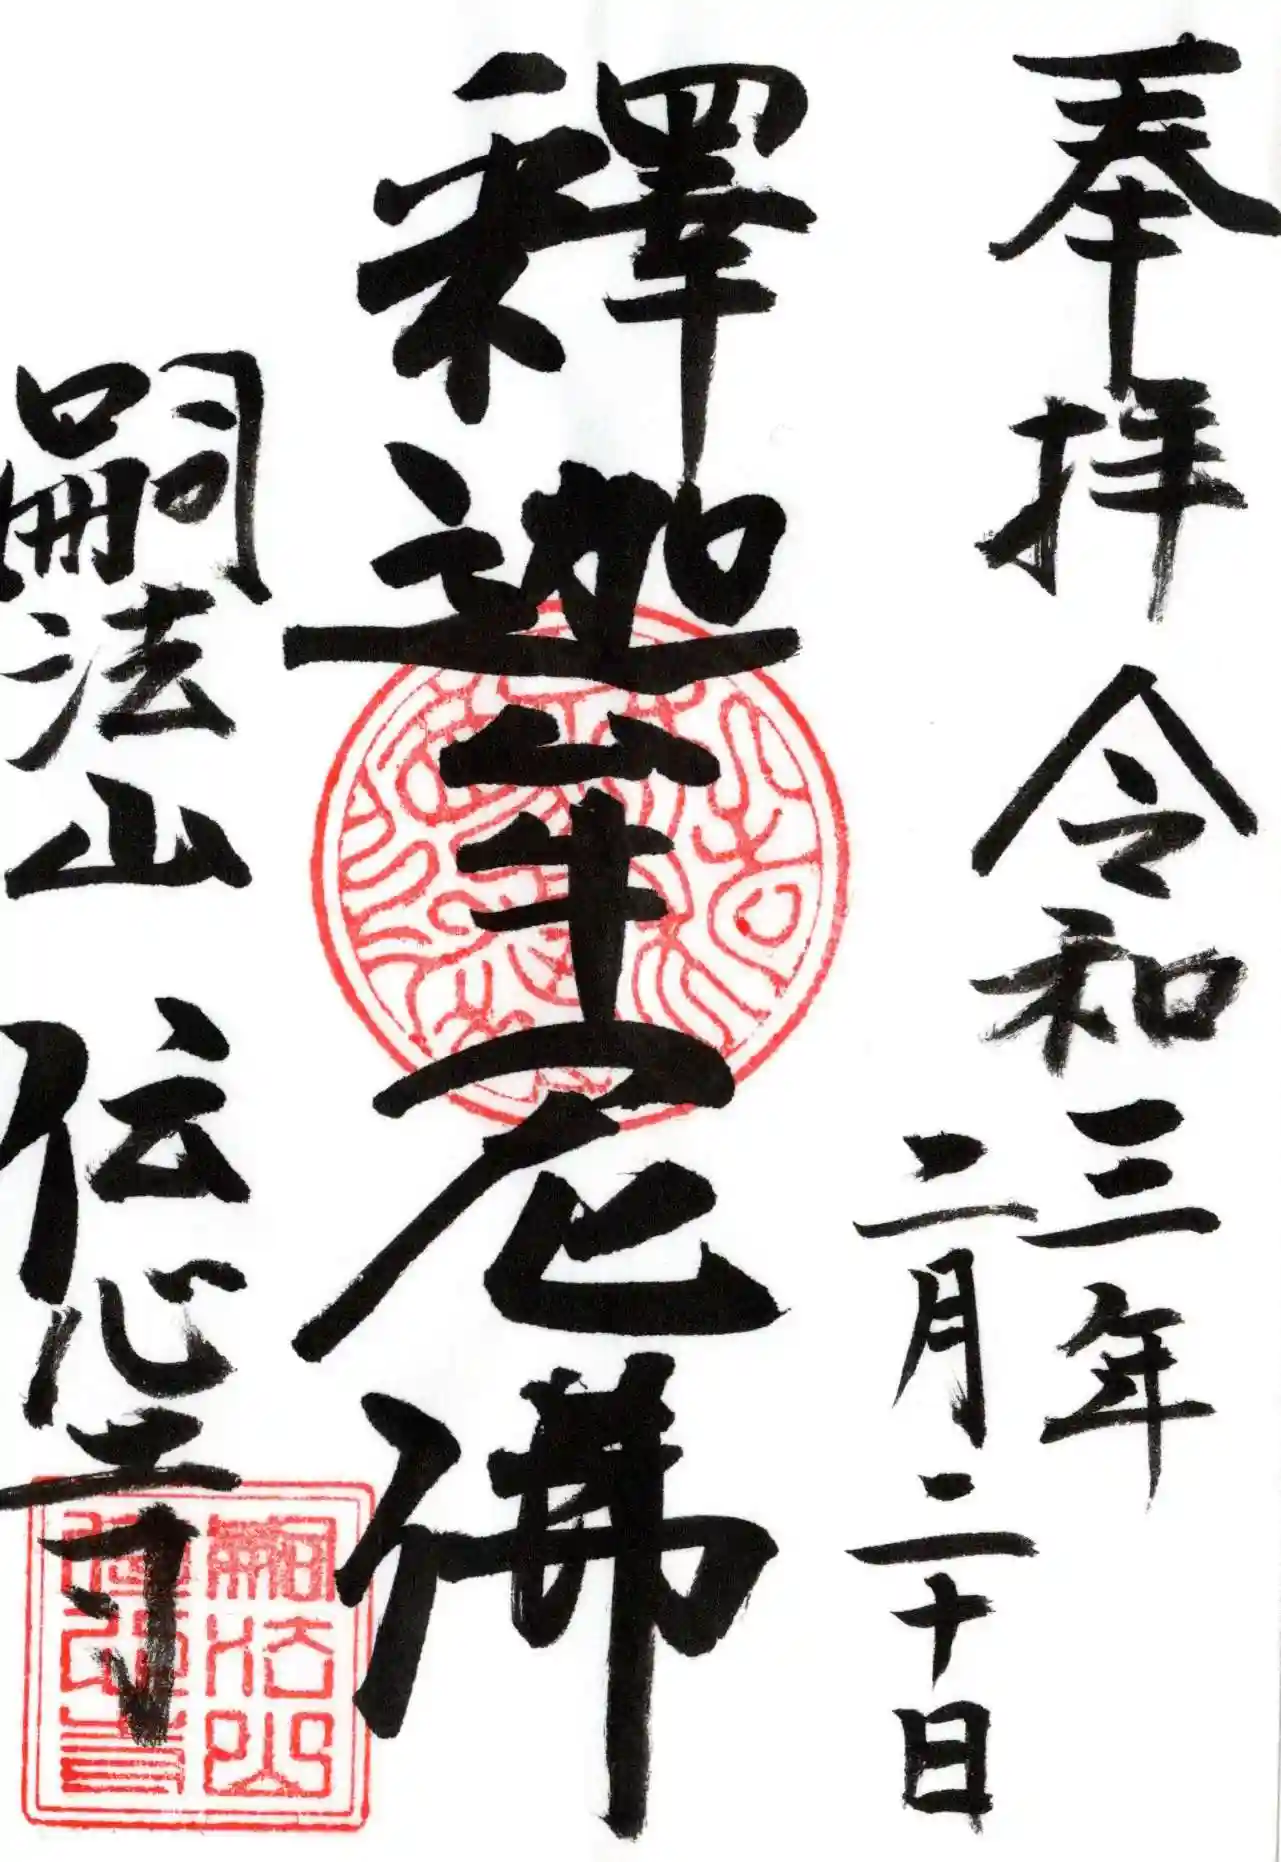 奉拝 令和三年
二月二十日
釋迦牟尼佛
嗣法山 伝心寺
嗣法山
傳心寺